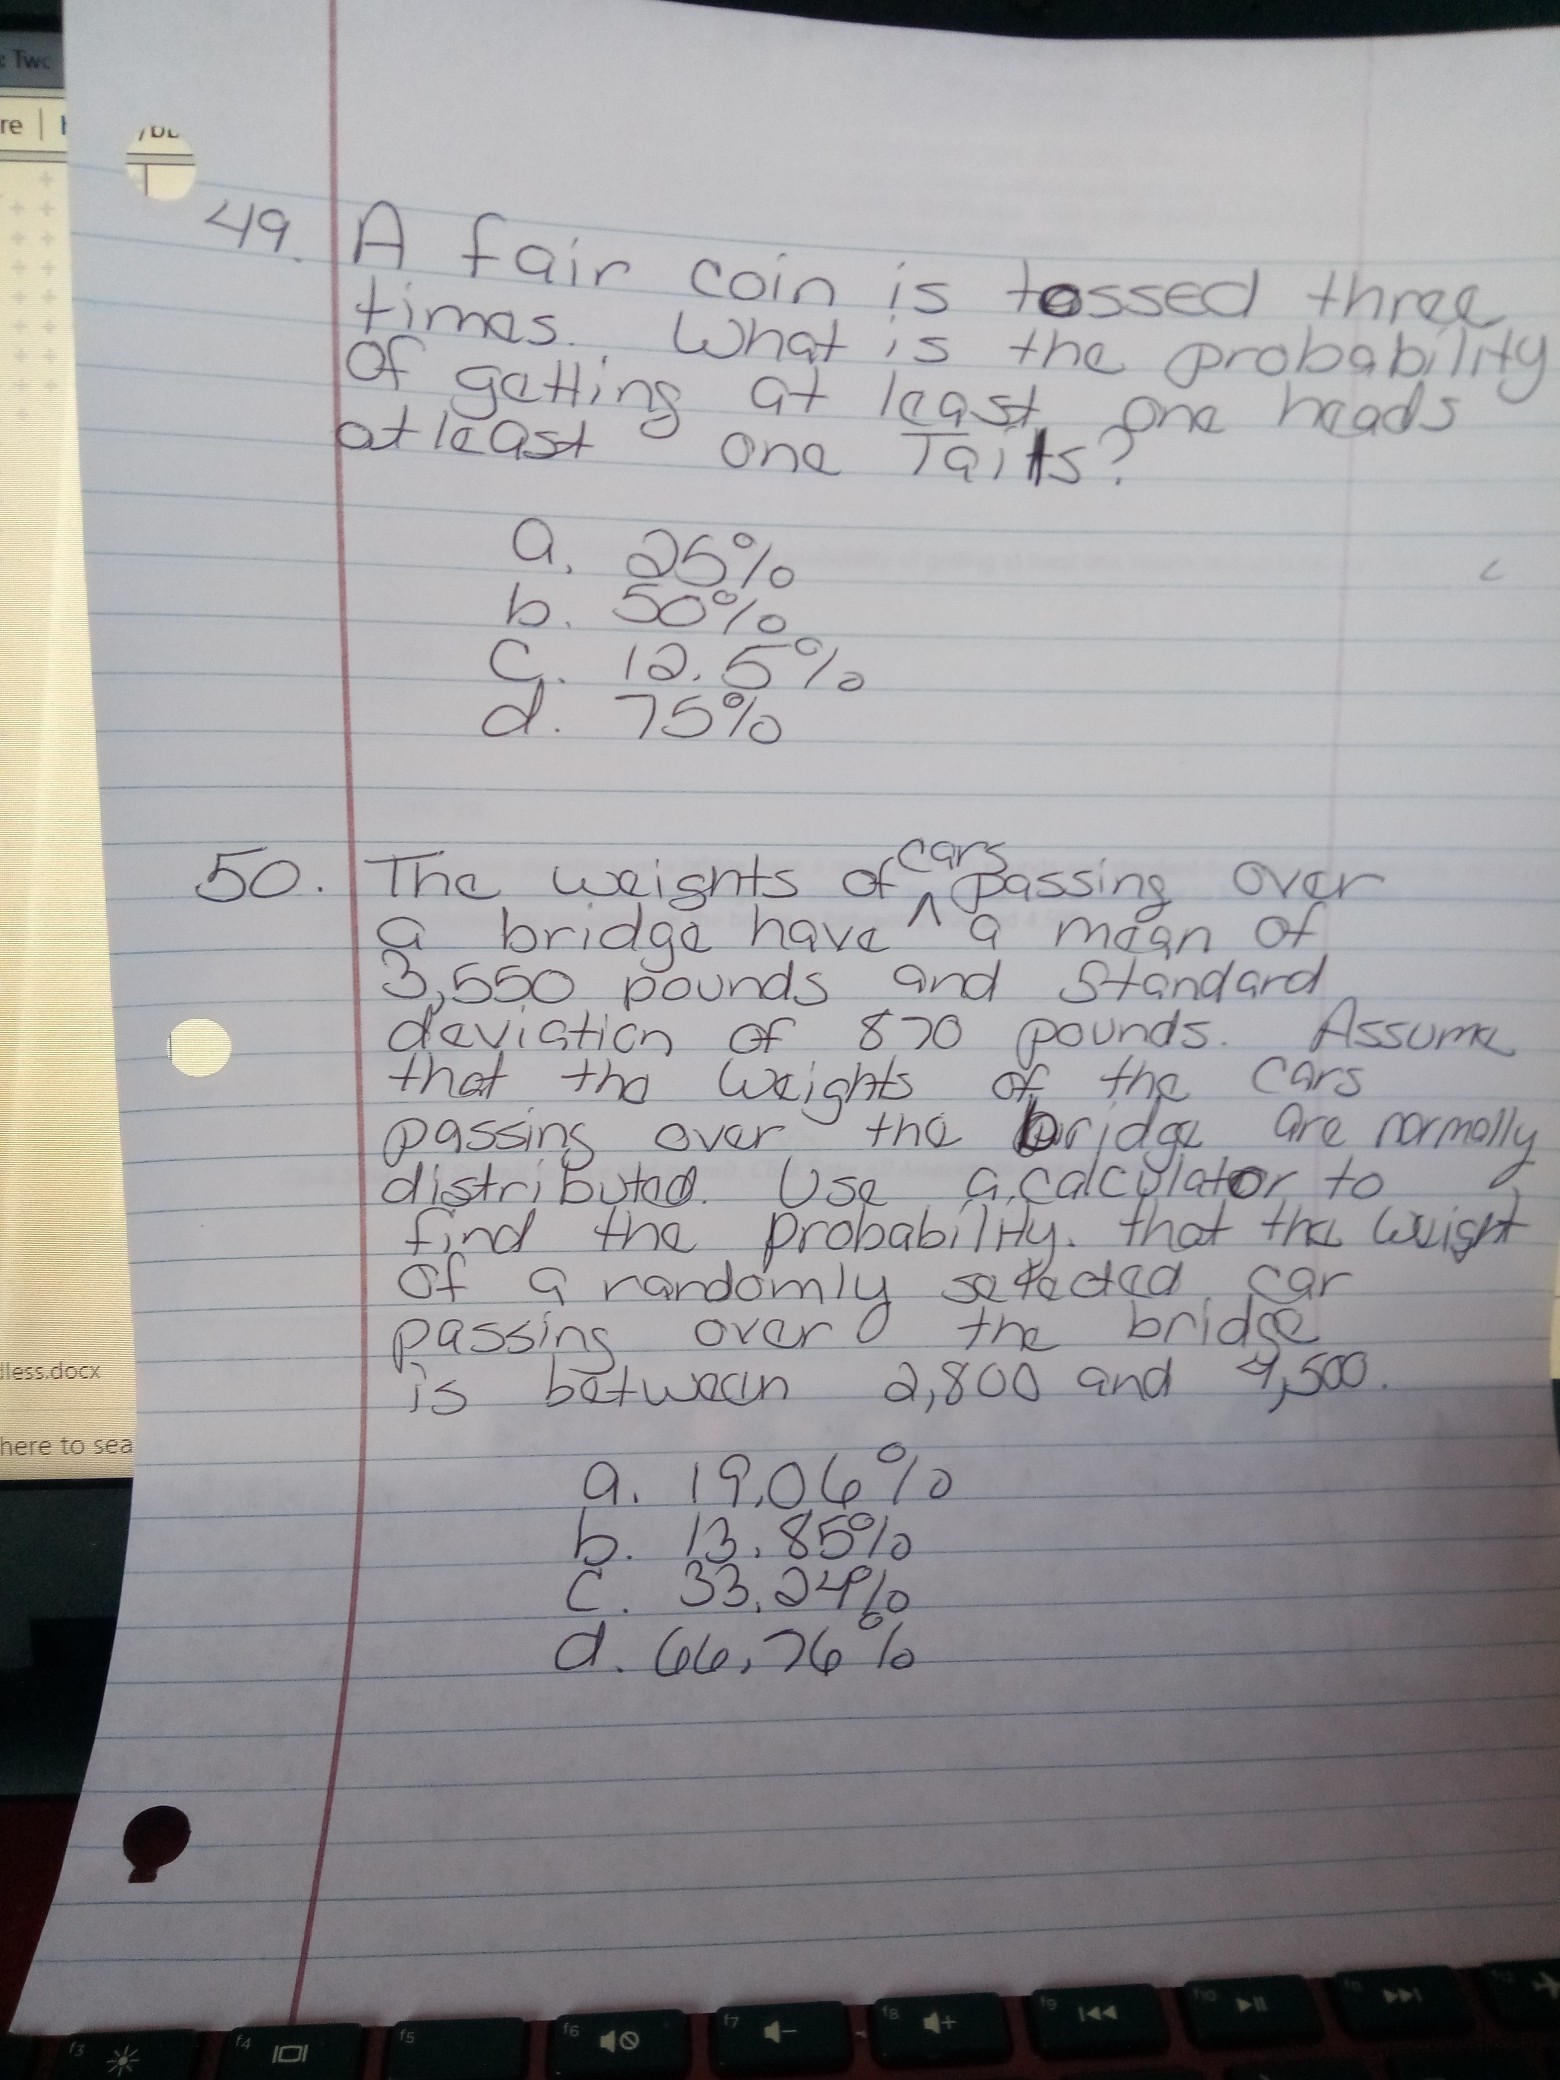 : Two
re |
49. A fair coin is tossed three
times. What is the probability
of getting at least one heads
at least one Tails?
a. 25%
b. 50%
c. 12.5%
d. 75%
50. The weights of cars passing over
a bridge have a mean of
3,550 pounds and Standard
deviation of 870 pounds. Assume
that the weights of the cars
passing over the bridge are normally
distributed. Use a calculator to
find the probability. that the weight
of a randomly selected car
passing over the bridge
is between 2,800 and 4,500.
a. 19.06%
b. 13.85%
c. 33.24%
d. 66.76%
lless.docx
here to sea
f3
f4
f5
f6
f7
f8
f9
f10